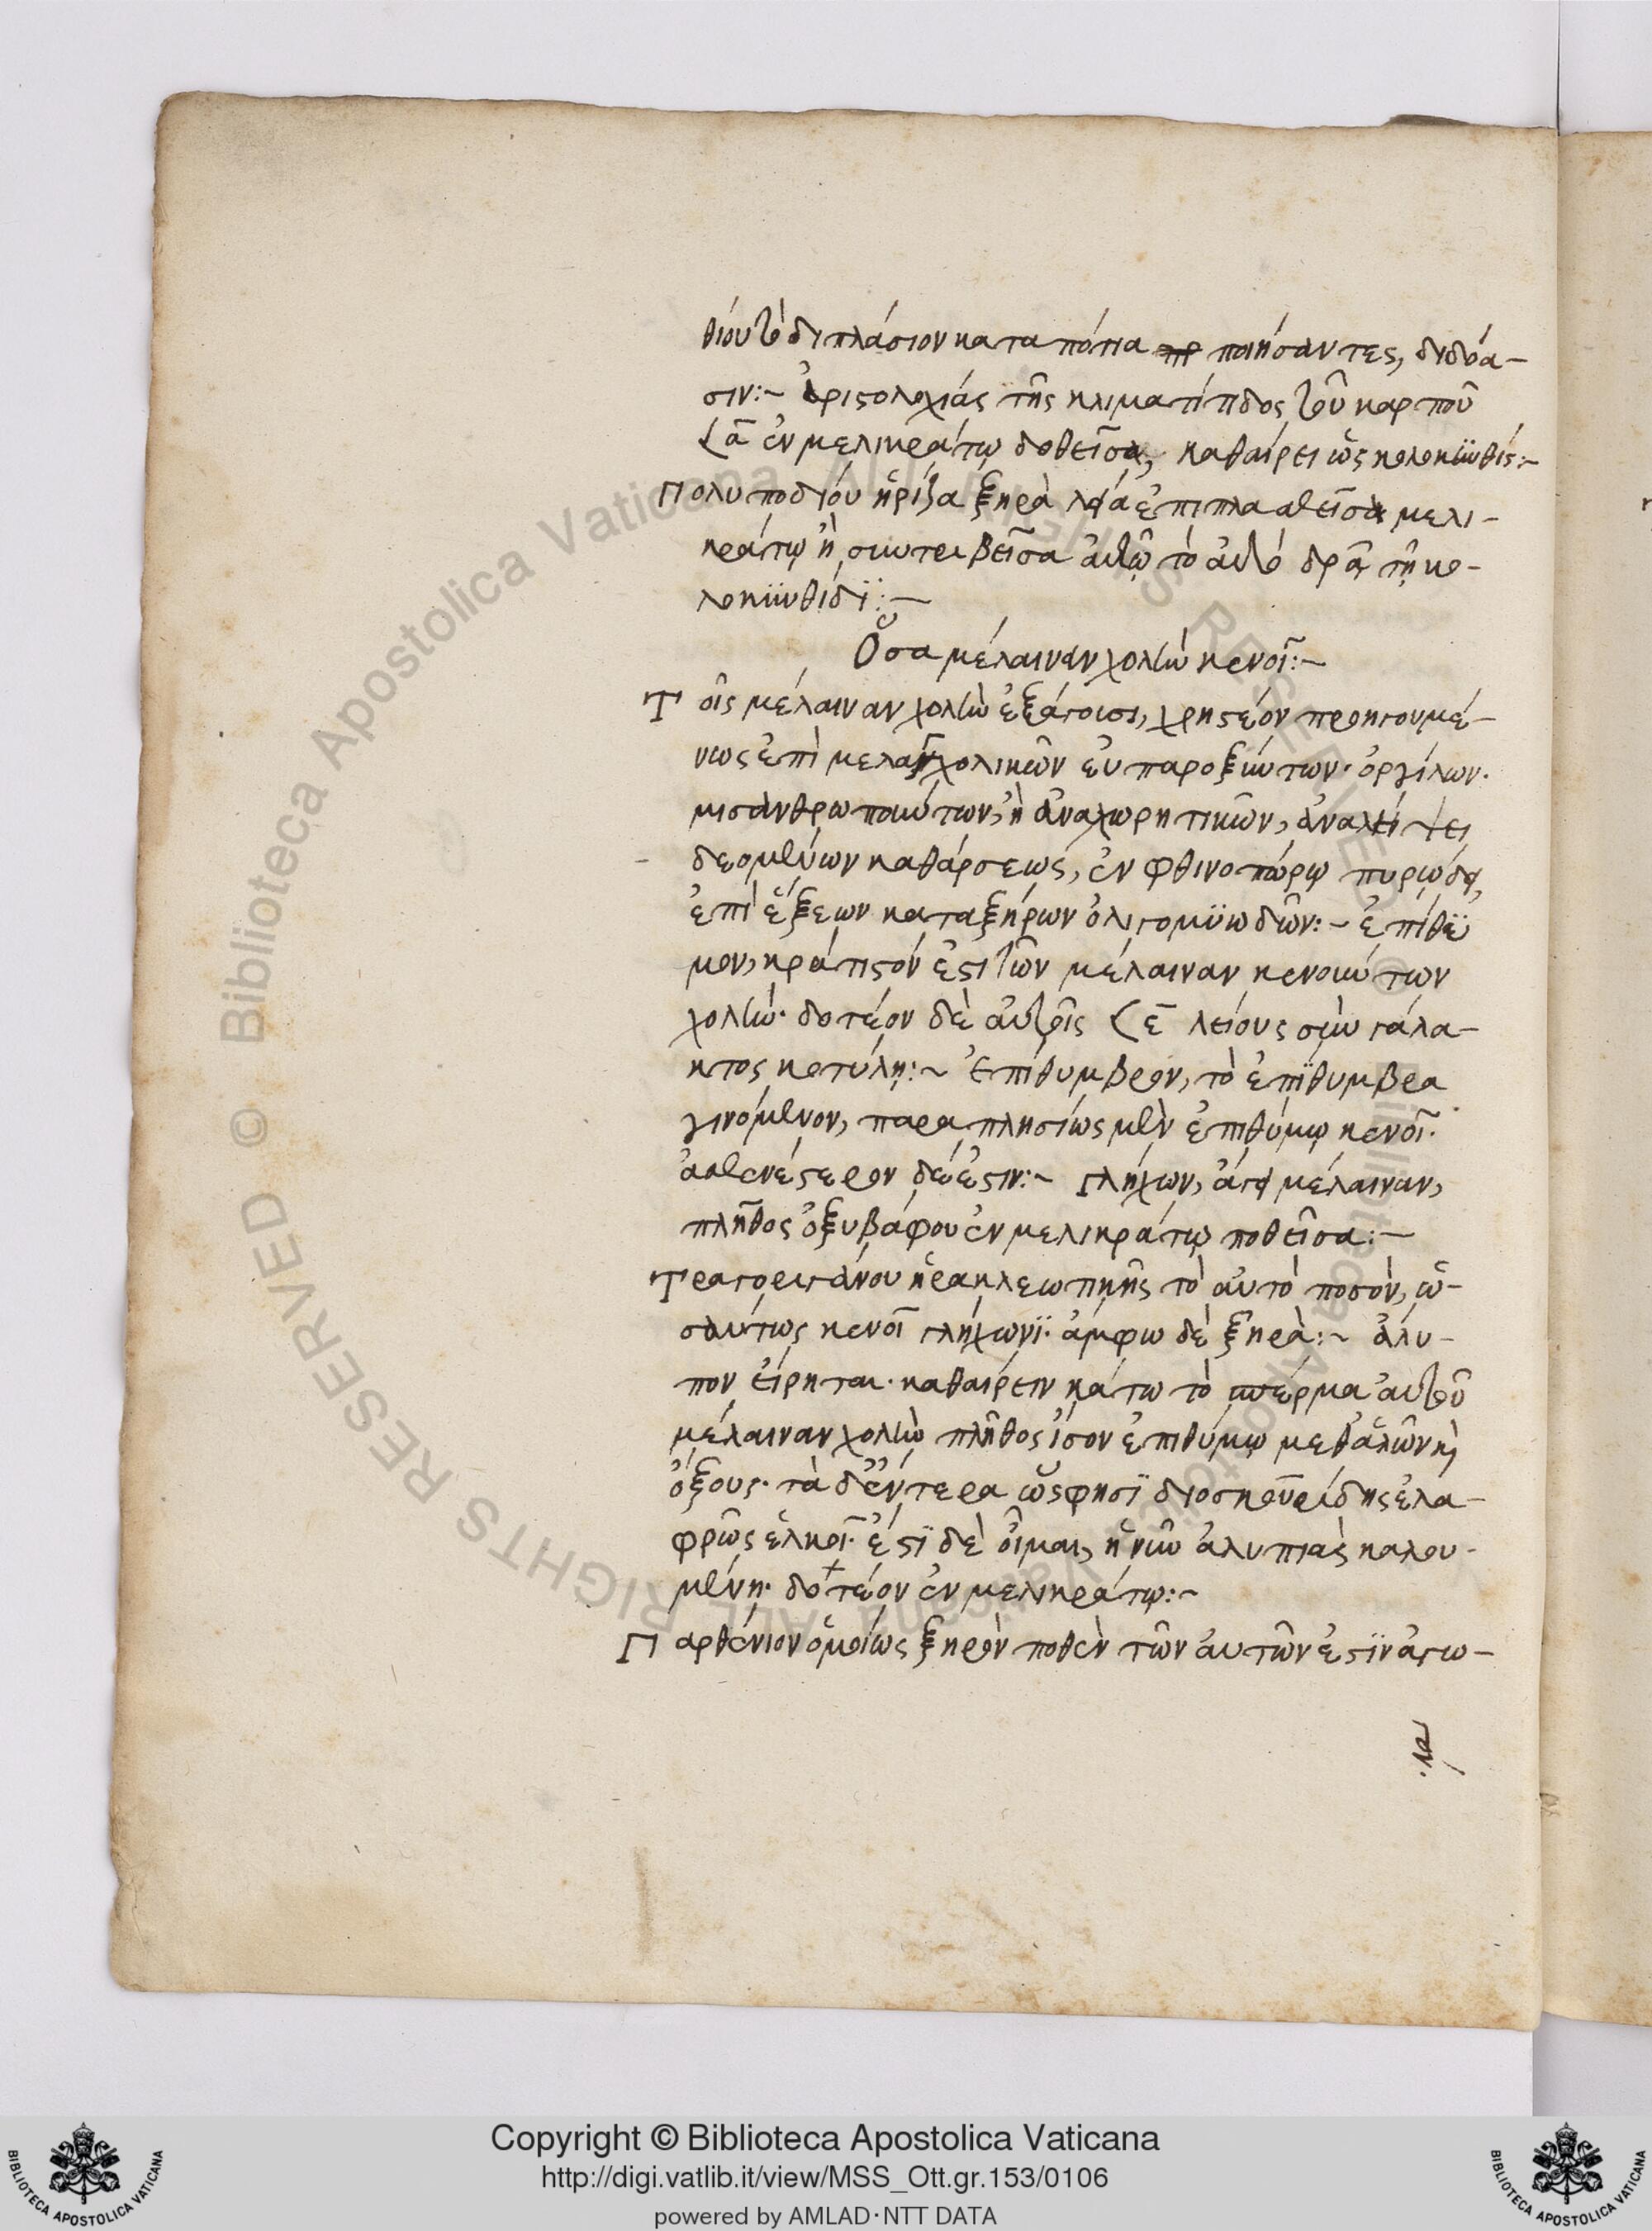 θίου τὸ διπλάσιον καταπότια ποιήσαντες, διδόα-
σιν:~ ἀριστολοχίας τῆς κλιματίτιδος τοῦ καρποῦ
ἐν μελικράτῳ δοθεῖσα, καθαίρει ὡς κολοκυνθίς:~
Πολυποδίου ἡ ῥίζα ξηρὰ λεία ἐπιπλασθεῖσα μελι-
κράτῳ ἢ συντριβεῖσα αὐτῷ τὸ αὐτὸ δρᾷ τῇ κο-
λοκυνθίδι:~
Ὅσα μέλαιναν χολὴν κενοῖ:~
Τοῖς μέλαιναν χολὴν ἐξάγουσι, χρηστέον προηγουμέ-
νως ἐπὶ μελαγχολικῶν εὐπαροξύντων· ὀργίλων·
μισανθρωπούντων, ἢ ἀναχωρητικῶν, ἀναλείψει
δεομένων καθάρσεως, ἐν φθινοπώρῳ πυριώδει,
ἐπὶ ἕξεων καταξήρων ὀλιγομυωδῶν:~ ἐπίθυ
μον, κράτιστόν ἐστι τῶν μέλαιναν κενούντων
χολήν· δοτέον δὲ αὐτοῖς λείους σὺν γάλα-
κτος κοτύλῃ:~ ἐπίθυμβρον, τὸ ἐπὶ θύμβρα
γινόμενον, παραπλησίως μὲν ἐπιθύμῳ κενοῖ·
ἀσθενέστερον δέ ἐστιν:~ γλήχων, ἄγει μέλαιναν,
πλῆθος ὀξυβάφου ἐν μελικράτῳ ποθεῖσα:~
Τραγοριγάνου ἡρακλεωτικῆς τὸ αὐτὸ ποσὸν, ὡ-
σαύτως κενοῖ γλήχωνι· ἄμφω δὲ ξηρὰ:~ ἄλυ-
πον εἴρηται· καθαίρειν κάτω τὸ σπέρμα αὐτοῦ
μέλαιναν χολὴν πλῆθος ἴσον ἐπιθύμῳ μεθ' ἁλῶν καὶ
ὄξους· τὰ δ' ἔντερα ὥς φησι διοσκουρίδης ἐλα-
φρῶς ἑλκοῖ· ἔστι δὲ οἶμαι, ἡ νῦν ἀλυπιὰς καλου-
μένη· δοτέον ἐν μελικράτῳ:~
Παρθένιον ὁμοίως ξηρὸν ποθὲν τῶν αὐτῶν ἐστὶν ἀγω-
Copyright © Biblioteca Apostolica Vaticana
http://digi.vatlib.it/view/MSS_Ott.gr.153/0106
powered by AMLAD·NTT DATA
BIBLIOTECA APOSTOLICA VATICANA
BIBLIOTECA APOSTOLICA VATICANA